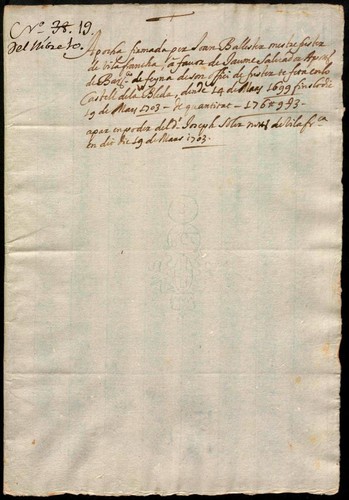 Nº 38. 19.
Del llibre to.
Apocha firmada per Joan Ballester mestre fuster
de vila franca, a favor de Jaume Salvador
de Barna de feyna de son offici de fuster te feta en lo
Castell de la Bleda, desde 14 de Mars 1699 fins lo die
19 de Mars 1703 - de quantitat - 176 # 9 ß 3 -
apar en poder del Dr Joseph Soler notri de Vila fca
en dit die 19 de Mars 1703.